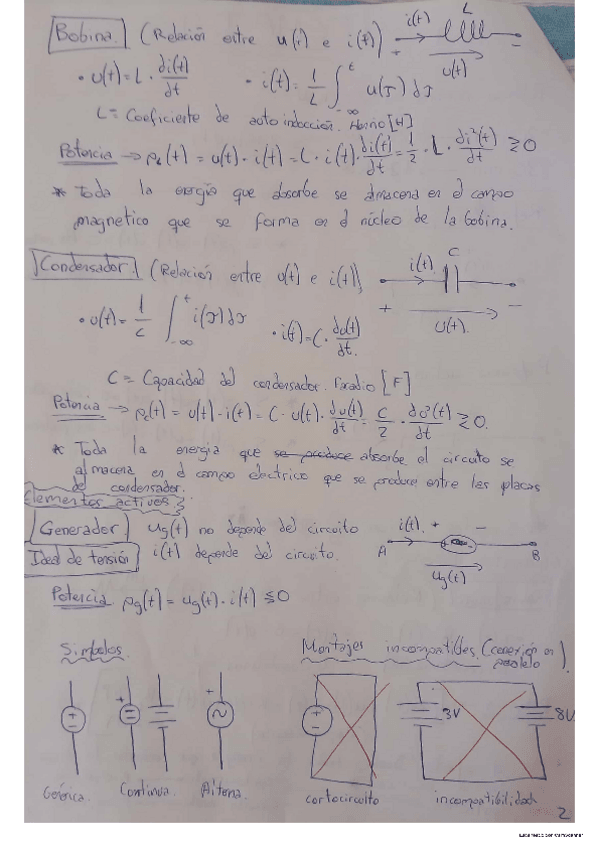 Bobina. (Relación entre u(t) e i(t)) i(t) L
+ - u(t)
• u(t) = L · di(t)/dt • i(t) = 1/L ∫_{-∞}^{t} u(τ) dτ
L = Coeficiente de auto inducción. Henrio [H]
Potencia → p_L(t) = u(t) · i(t) = L · i(t) · di(t)/dt = 1/2 · L · di²(t)/dt ≷ 0
* Toda la energía que absorbe se almacena en el campo
magnetico que se forma en el núcleo de la bobina.
Condensador (Relación entre u(t) e i(t)) i(t) C
+ - u(t).
• u(t) = 1/C ∫_{-∞}^{t} i(τ) dτ • i(t) = C · du(t)/dt.
C = Capacidad del condensador. Faradio [F]
Potencia → p_c(t) = u(t) · i(t) = C · u(t) · du(t)/dt = C/2 · du²(t)/dt ≷ 0.
* Toda la energia que se produce absorbe el circuito se
almacena en el campo electrico que se produce entre las placas
del condensador.
Elementos activos
Generador Ideal de tensión
u_g(t) no depende del circuito
i(t) depende del circuito.
i(t). + -
A B
u_g(t)
Potencia p_g(t) = u_g(t) · i(t) ≶ 0
Simbolos. Montajes incompatibles. (conexión en paralelo).
+ - + + 3V 8V
Genérica. Continua. Alterna. cortocircuito incompatibilidad
2